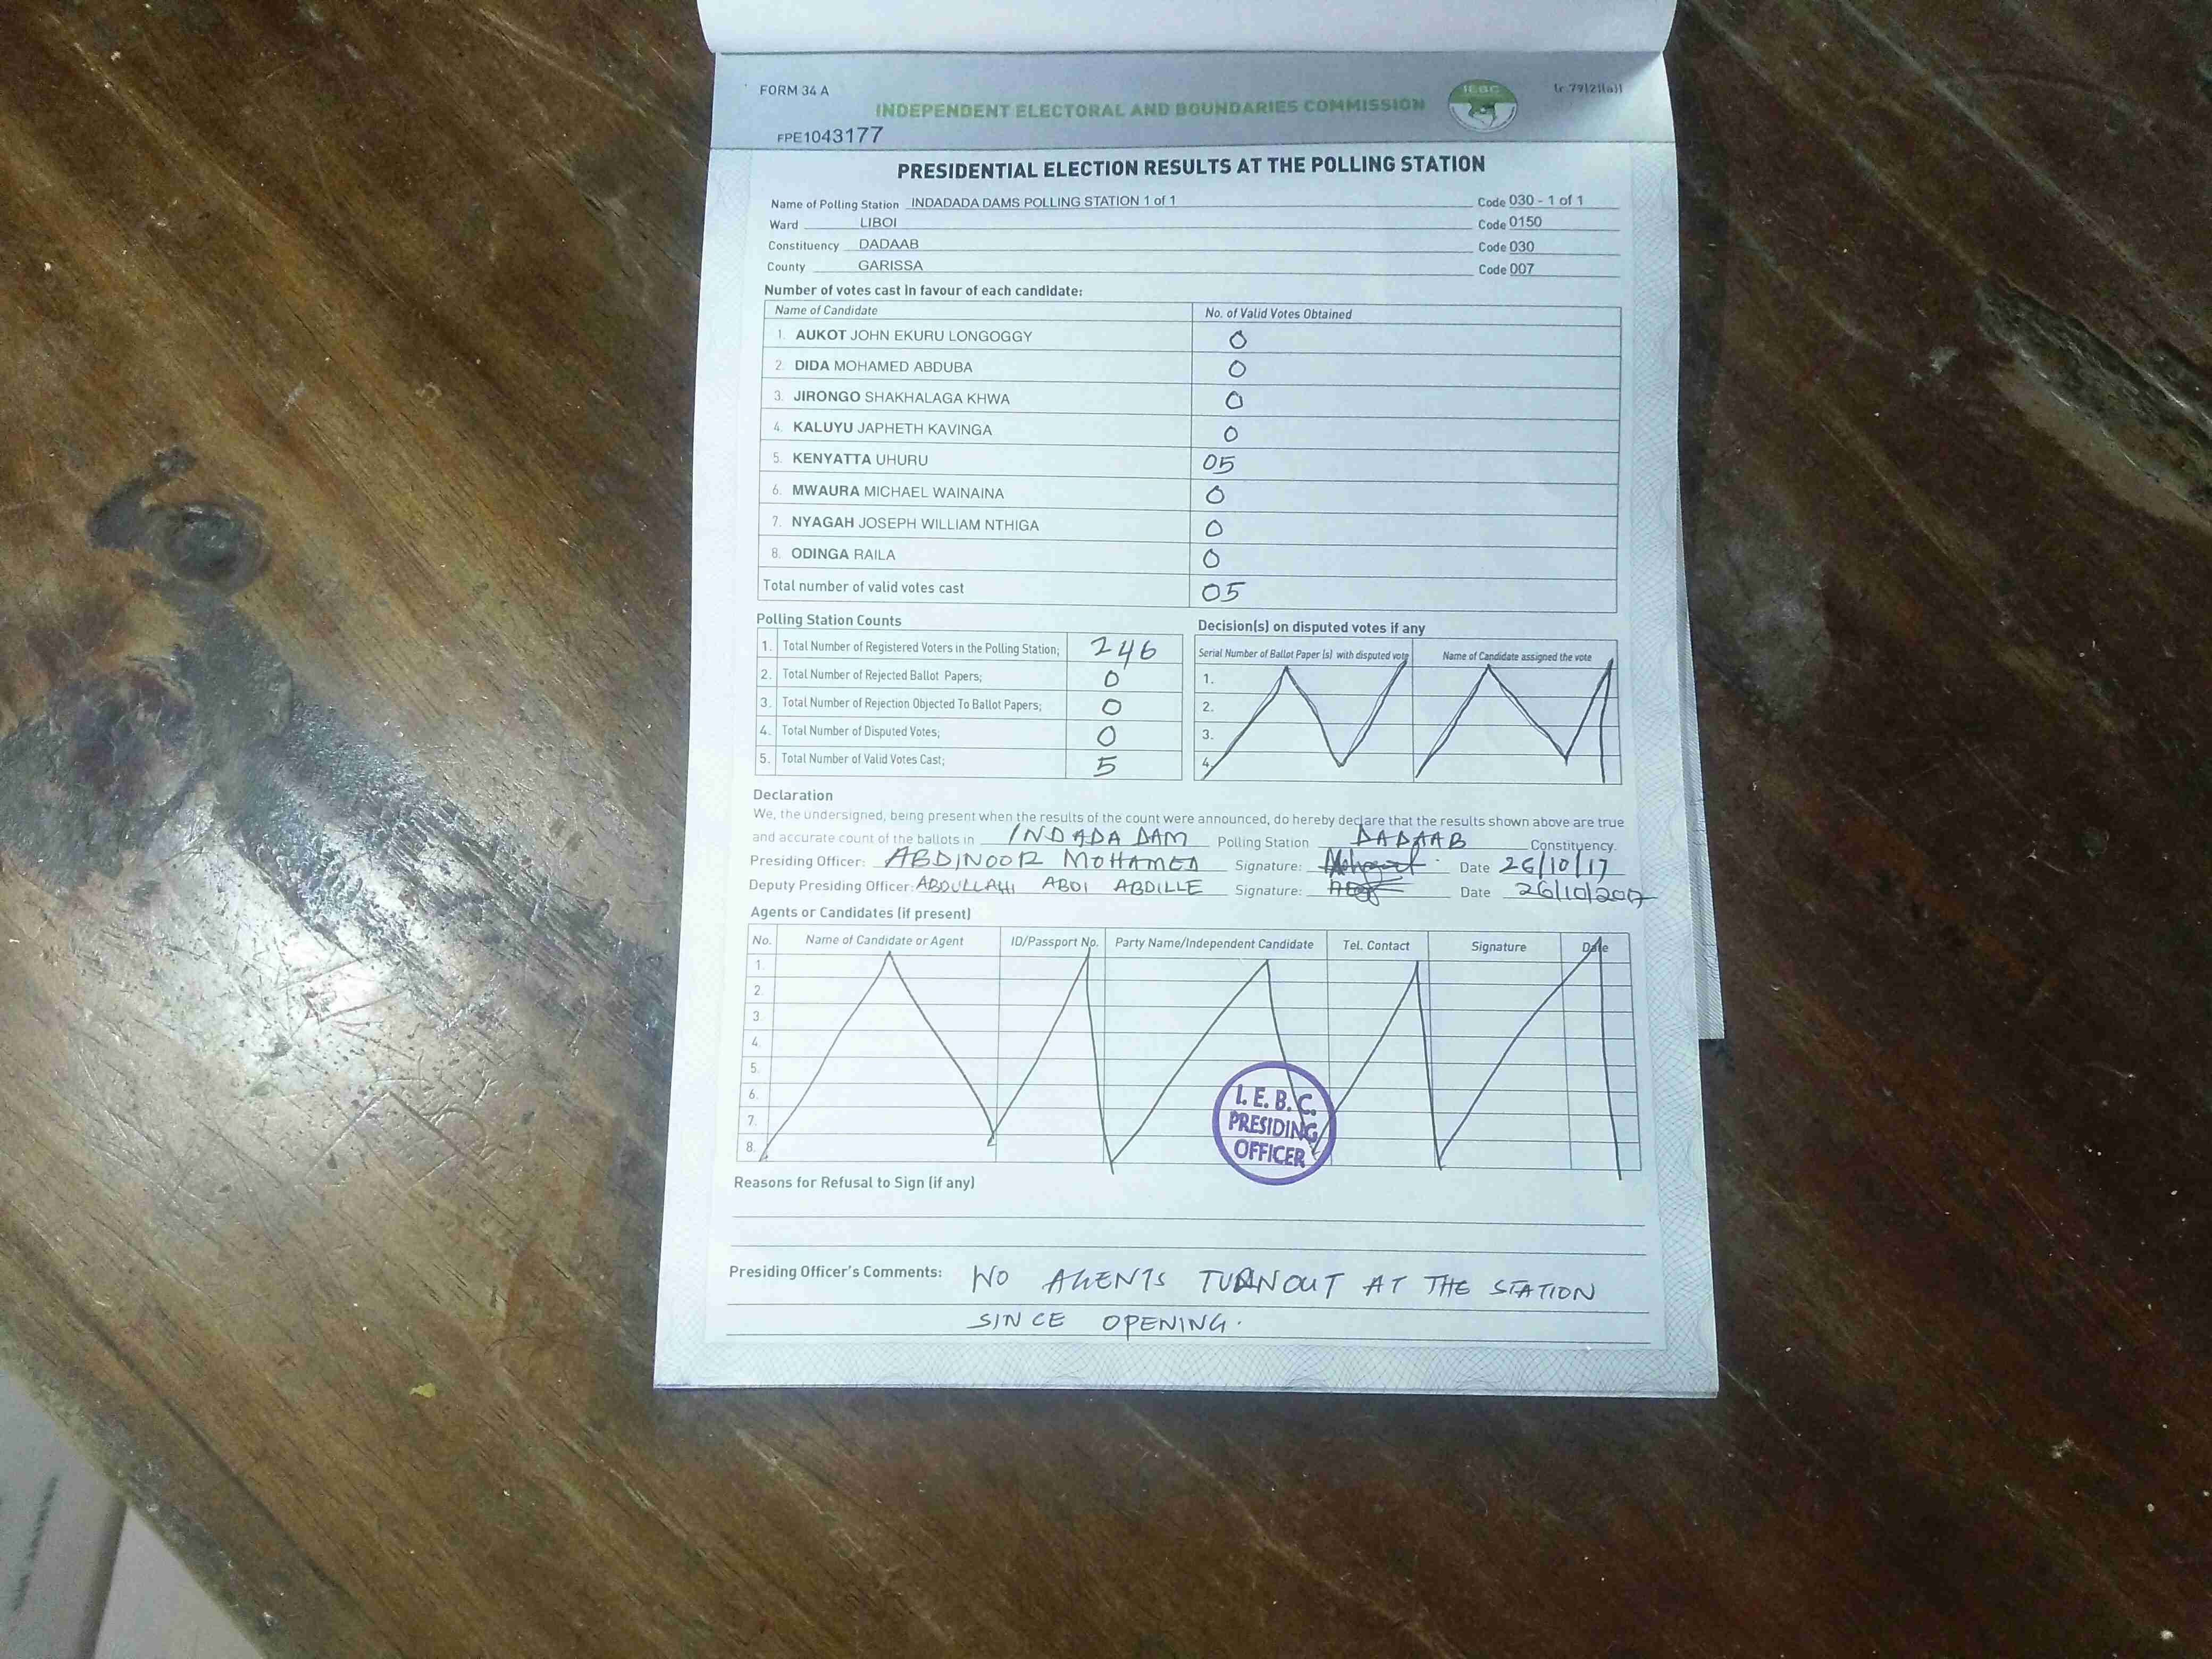 FORM 34 A
(r 79(2)(a))
INDEPENDENT ELECTORAL AND BOUNDARIES COMMISSION
IEBC
FPE1043177
PRESIDENTIAL ELECTION RESULTS AT THE POLLING STATION
Name of Polling Station INDADADA DAMS POLLING STATION 1 of 1 Code 030 - 1 of 1
Ward LIBOI Code 0150
Constituency DADAAB Code 030
County GARISSA Code 007
Number of votes cast in favour of each candidate:
Name of Candidate No. of Valid Votes Obtained
1. AUKOT JOHN EKURU LONGOGGY 0
2. DIDA MOHAMED ABDUBA 0
3. JIRONGO SHAKHALAGA KHWA 0
4. KALUYU JAPHETH KAVINGA 0
5. KENYATTA UHURU 05
6. MWAURA MICHAEL WAINAINA 0
7. NYAGAH JOSEPH WILLIAM NTHIGA 0
8. ODINGA RAILA 0
Total number of valid votes cast 05
Polling Station Counts
1. Total Number of Registered Voters in the Polling Station; 246
2. Total Number of Rejected Ballot Papers; 0
3. Total Number of Rejection Objected To Ballot Papers; 0
4. Total Number of Disputed Votes; 0
5. Total Number of Valid Votes Cast; 5
Decision(s) on disputed votes if any
Serial Number of Ballot Paper (s) with disputed vote Name of Candidate assigned the vote
1.
2.
3.
4.
Declaration
We, the undersigned, being present when the results of the count were announced, do hereby declare that the results shown above are true
and accurate count of the ballots in INDADA DAM Polling Station DADAAB Constituency.
Presiding Officer: ABDINOOR MOHAMED Signature: Date 26/10/17
Deputy Presiding Officer: ABDULLAHI ABDI ABDILLE Signature: Date 26/10/2017
Agents or Candidates (if present)
No. Name of Candidate or Agent ID/Passport No. Party Name/Independent Candidate Tel. Contact Signature Date
1.
2.
3.
4.
5.
6.
7.
8.
I. E. B. C.
PRESIDING
OFFICER
Reasons for Refusal to Sign (if any)
Presiding Officer's Comments: NO AGENTS TURNOUT AT THE STATION
SINCE OPENING.